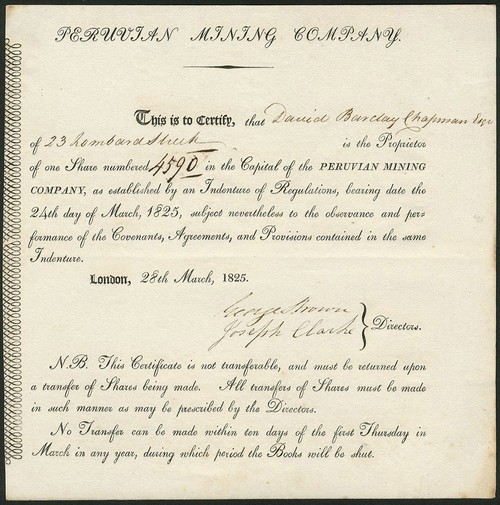 PERUVIAN MINING COMPANY.
This is to Certify, that David Barclay Chapman Esqr
of 23 Lombard Street is the Proprietor
of one Share numbered 4590 in the Capital of the PERUVIAN MINING
COMPANY, as established by an Indenture of Regulations, bearing date the
24th day of March, 1825, subject nevertheless to the observance and per-
formance of the Covenants, Agreements, and Provisions contained in the same
Indenture.
London, 28th March, 1825.
George Brown
Joseph Clarke } Directors.
N.B. This Certificate is not transferable, and must be returned upon
a transfer of Shares being made. All transfers of Shares must be made
in such manner as may be prescribed by the Directors.
No Transfer can be made within ten days of the first Thursday in
March in any year, during which period the Books will be shut.